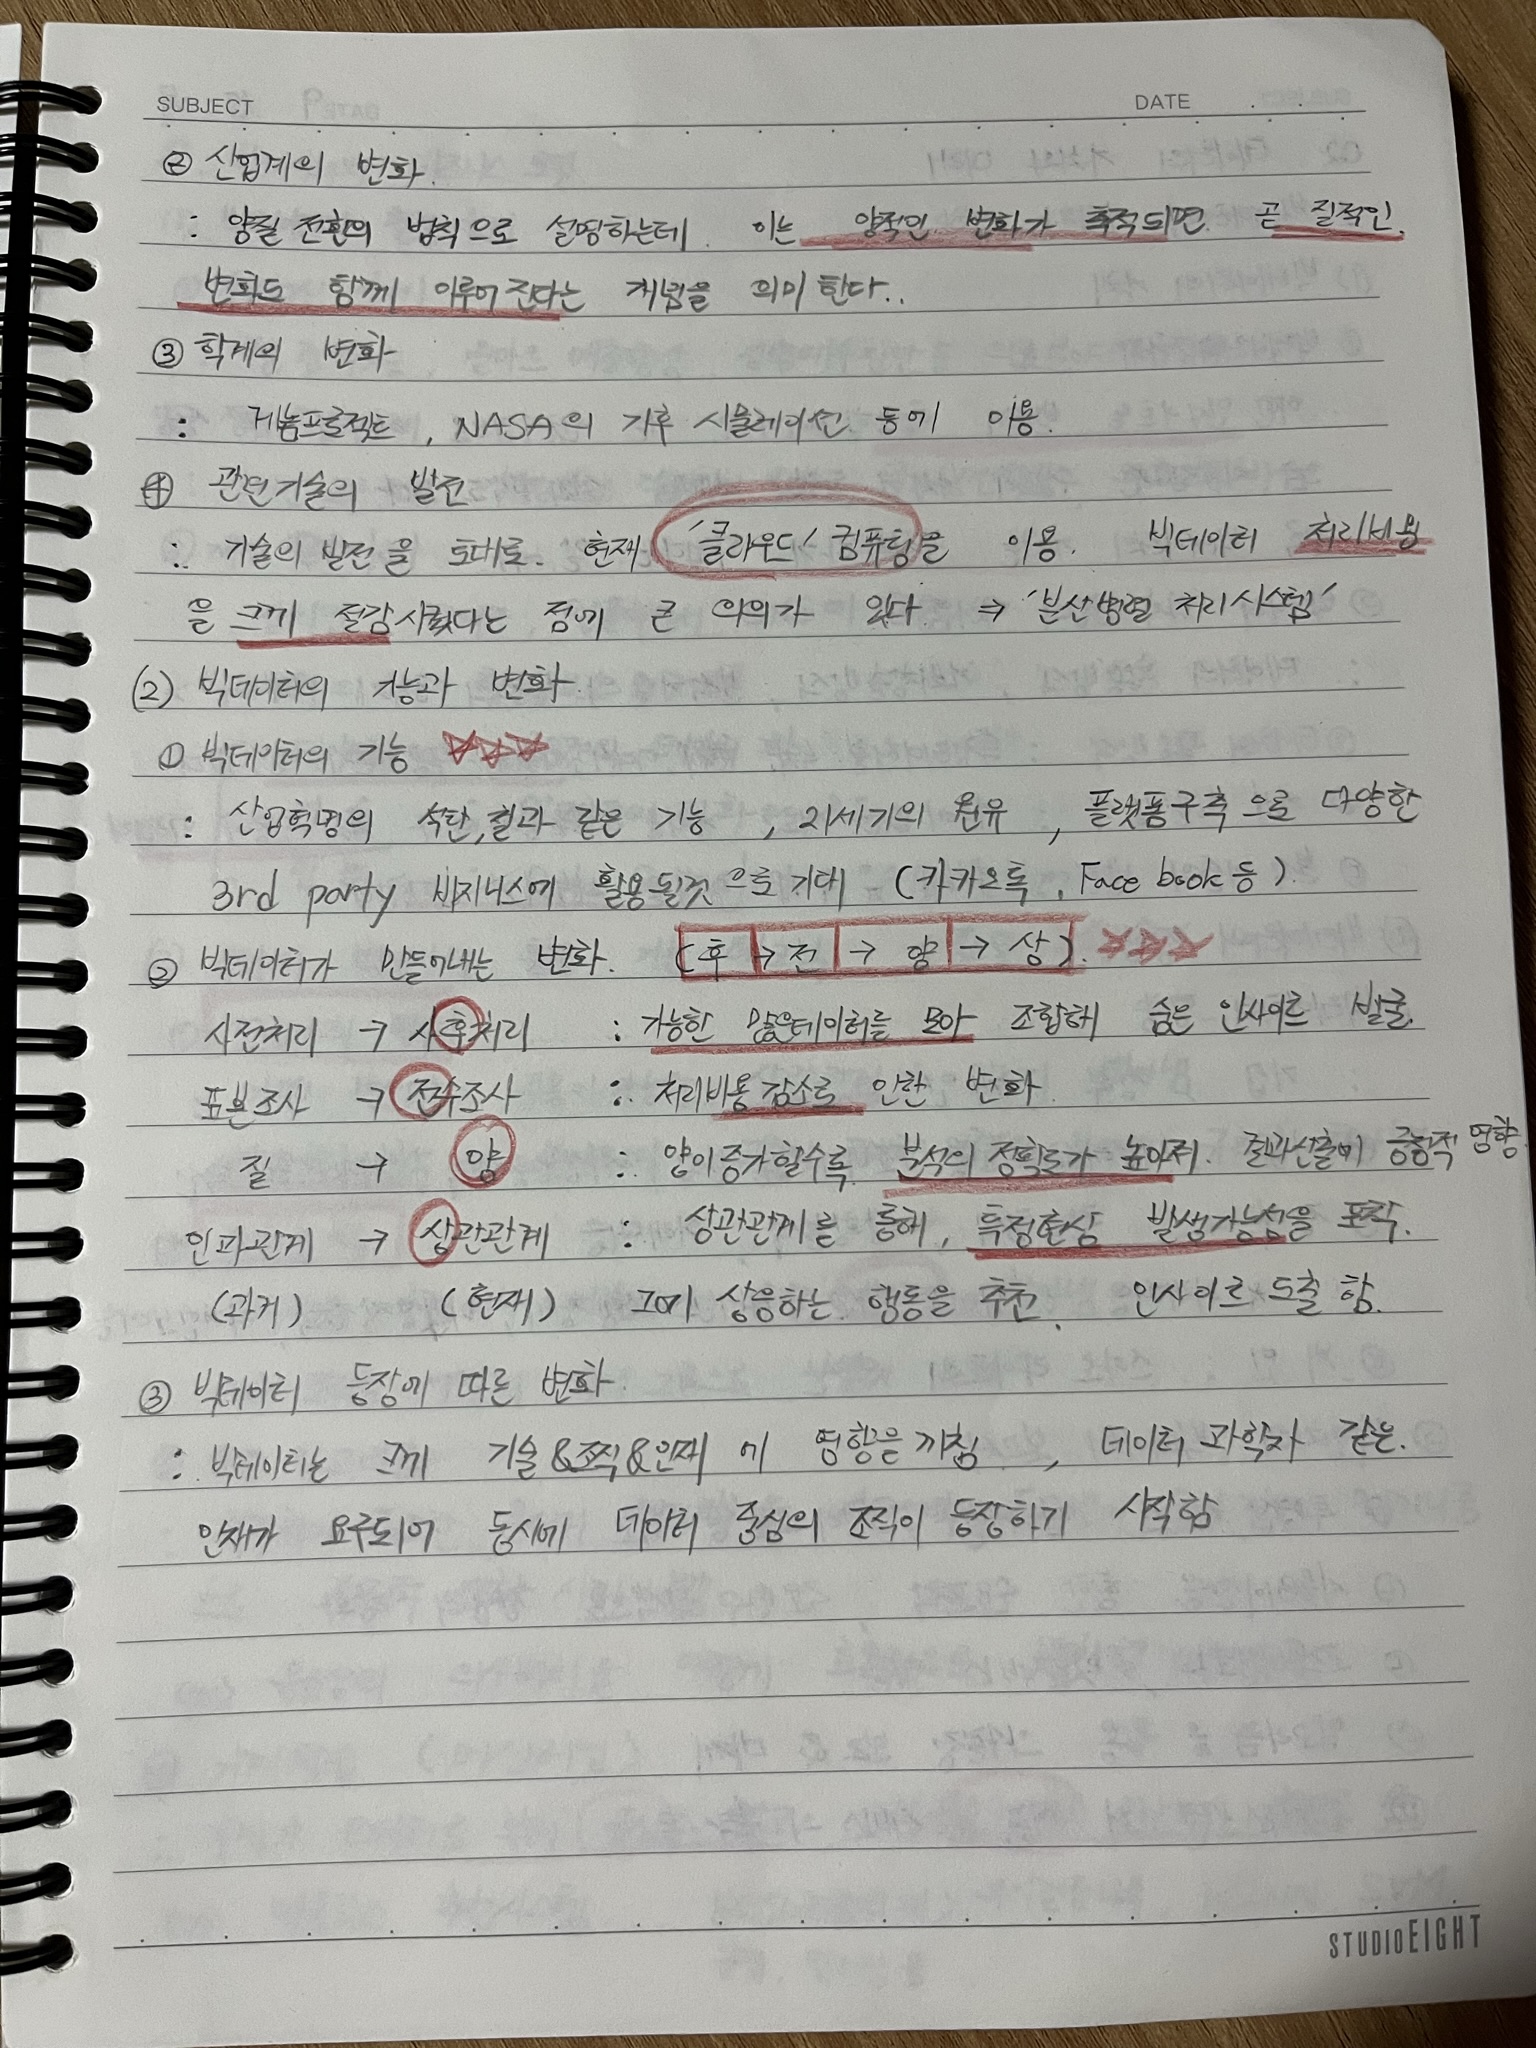 SUBJECT DATE
② 산업계의 변화.
: 양질 전환의 법칙으로 설명하는데. 이는 양적인 변화가 축적되면 곧 질적인
변화도 함께 이루어 진다는 개념을 의미 한다..
③ 학계의 변화
: 게놈프로젝트, NASA의 기후 시뮬레이션 등에 이용.
④ 관련기술의 발전
: 기술의 발전을 토대로. 현재 '클라우드' 컴퓨팅을 이용. 빅데이터 처리비용
을 크게 절감시켰다는 점에 큰 의의가 있다 → '분산병렬 처리시스템'
(2) 빅데이터의 기능과 변화
① 빅데이터의 기능 ☆☆☆
: 산업혁명의 석탄,철과 같은 기능, 21세기의 원유, 플랫폼구축으로 다양한
3rd party 비지니스에 활용될것으로 기대 (카카오톡, Face book 등).
② 빅데이터가 만들어내는 변화. (후 → 전 → 양 → 상). ☆☆☆
사전처리 → 사후처리 : 가능한 많은데이터를 모아 조합해 숨은 인사이트 발굴.
표본조사 → 전수조사 : 처리비용감소로 인한 변화
질 → 양 : 양이증가할수록 분석의 정확도가 높아져. 결과산출에 긍정적 영향
인과관계 → 상관관계 : 상관관계를 통해, 특정현상 발생가능성을 포착.
(과거) (현재) 그에 상응하는 행동을 추천. 인사이트 도출 함.
③ 빅데이터 등장에 따른 변화
: 빅데이터는 크게 기술&조직&인재 에 영향을 끼침, 데이터 과학자 같은.
인재가 요구되어 동시에 데이터 중심의 조직이 등장하기 시작함
STUDIOEIGHT